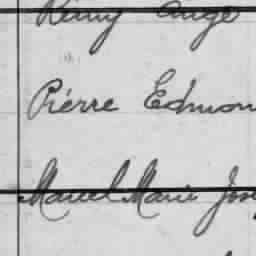 Rémy Ange
Piérre Edmon
Marcel Marie Jos